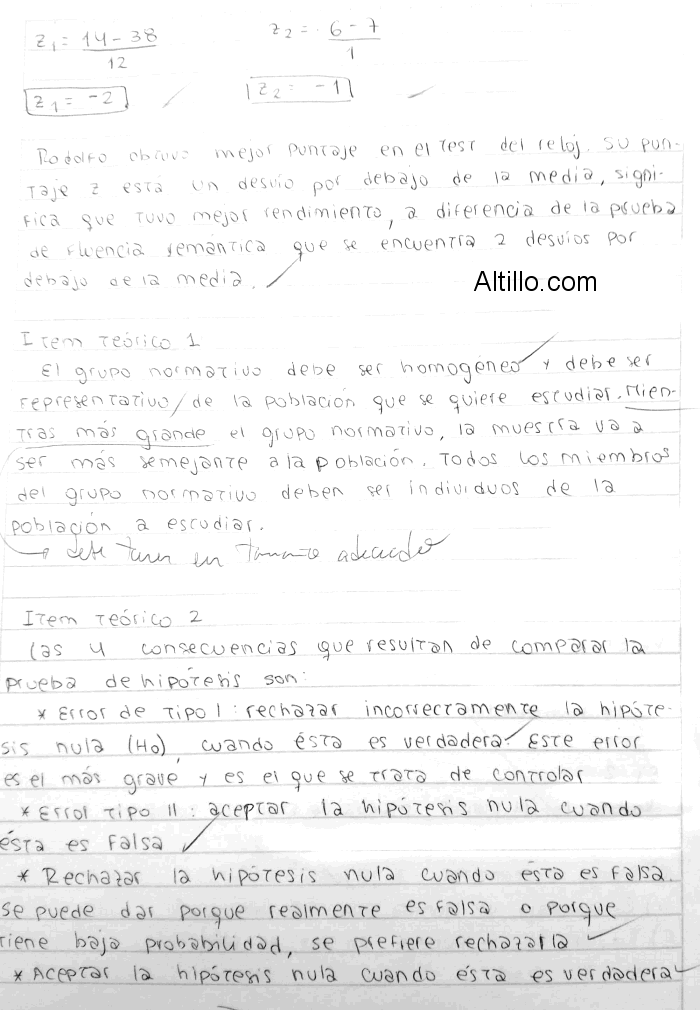 z₁ = 14 - 38 / 12
z₂ = 6 - 7 / 1
z₁ = -2
z₂ = -1
Rodolfo obtuvo mejor puntaje en el test del reloj. Su pun-
taje z está un desvío por debajo de la media, signi-
fica que tuvo mejor rendimiento, a diferencia de la prueba
de fluencia semántica que se encuentra 2 desvíos por
debajo de la media.
Altillo.com
Item teórico 1
El grupo normativo debe ser homogéneo y debe ser
representativo de la población que se quiere estudiar. Mien-
tras más grande el grupo normativo, la muestra va a
ser más semejante a la población. Todos los miembros
del grupo normativo deben ser individuos de la
población a estudiar.
→ debe tener un tamaño adecuado
Item teórico 2
Las 4 consecuencias que resultan de comparar la
prueba de hipótesis son:
* Error de tipo I: rechazar incorrectamente la hipóte-
sis nula (H₀), cuando ésta es verdadera. Este error
es el más grave y es el que se trata de controlar
* Error tipo II: aceptar la hipótesis nula cuando
ésta es falsa
* Rechazar la hipótesis nula cuando ésta es falsa.
se puede dar porque realmente es falsa o porque
tiene baja probabilidad, se prefiere rechazarla
* Aceptar la hipótesis nula cuando ésta es verdadera